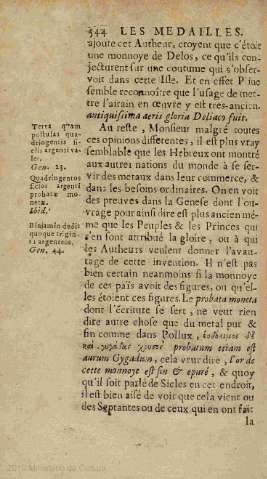 344 LES MEDAILLES.
ajoute cet Autheur, croyent que c'étoit
une monnoye de Delos, ce qu'ils con-
jecturent sur une coutume qui s'obser-
voit dans cette Isle. Et en effet P ine
semble reconnoître que l'usage de met-
tre l'airain en œuvre y est tres-ancien.
antiquissima aeris gloria Deliaco fuit.
Au reste, Monsieur malgré toutes
ces opinions differentes, il est plus vray
semblable que les Hebreux ont montré
aux autres nations du monde à se ser-
vir des metaux dans leur commerce, &
dans les besoins ordinaires. On en voit
des preuves dans la Genese dont l'ou-
vrage pour ainsi dire est plus ancien mé-
me que les Peuples & les Princes qui
s'en sont attribué la gloire, ou à qui
les Autheurs veulent donner l'avan-
tage de cette invention. Il n'est pas
bien certain neanmoins si la monnoye
de ces païs avoit des figures, ou qu'el-
les étoient ces figures. Le probata moneta
dont l'écriture se sert, ne veut rien
dire autre chose que du metal pur &
fin comme dans Pollux,
probatum etiam est
aurum Gygadium, cela veut dire, l'or de
cette monnoye est fin & epuré, & quoy
qu'il soit parlé de Sicles en cet endroit,
il est bien aisé de voir que cela vient ou
des Septantes ou de ceux qui en ont fait
la
Terra quam
postulas qua-
dringentis si-
clis argenti va-
let.
Gen. 23.
Quadringentos
siclos argenti
probatæ mo-
neta.
Ibid.
Biniamin dedit
quoque trigin-
ta argenteos.
Gen. 44.
2010 Ministerio de Cultura